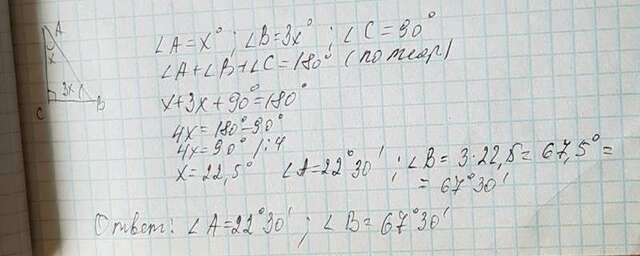 A
x
3x
C
B
∠A=x° ; ∠B=3x° ; ∠C=90°
∠A+∠B+∠C=180° (по теор)
x+3x+90°=180°
4x=180°-90°
4x=90° /:4
x=22,5° ∠A=22°30' ; ∠B= 3·22,5= 67,5° =
= 67°30'
Ответ: ∠A=22°30' ; ∠B= 67°30'